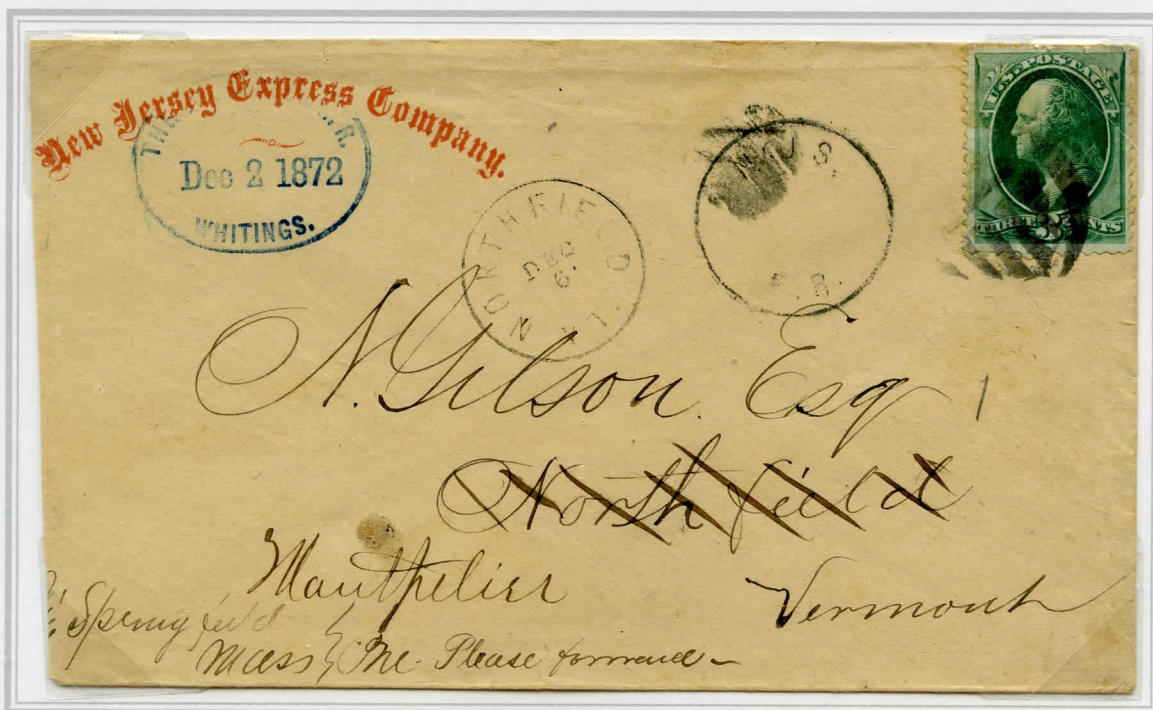 New Jersey Express Company.
Dec 2 1872
WHITINGS.
NORTHFIELD VT.
DEC
6
U.S. POSTAGE
THREE 3 CENTS
N. Gilson. Esq
Northfield
Montpelier
Vermont
Springfield
Mass Please forward